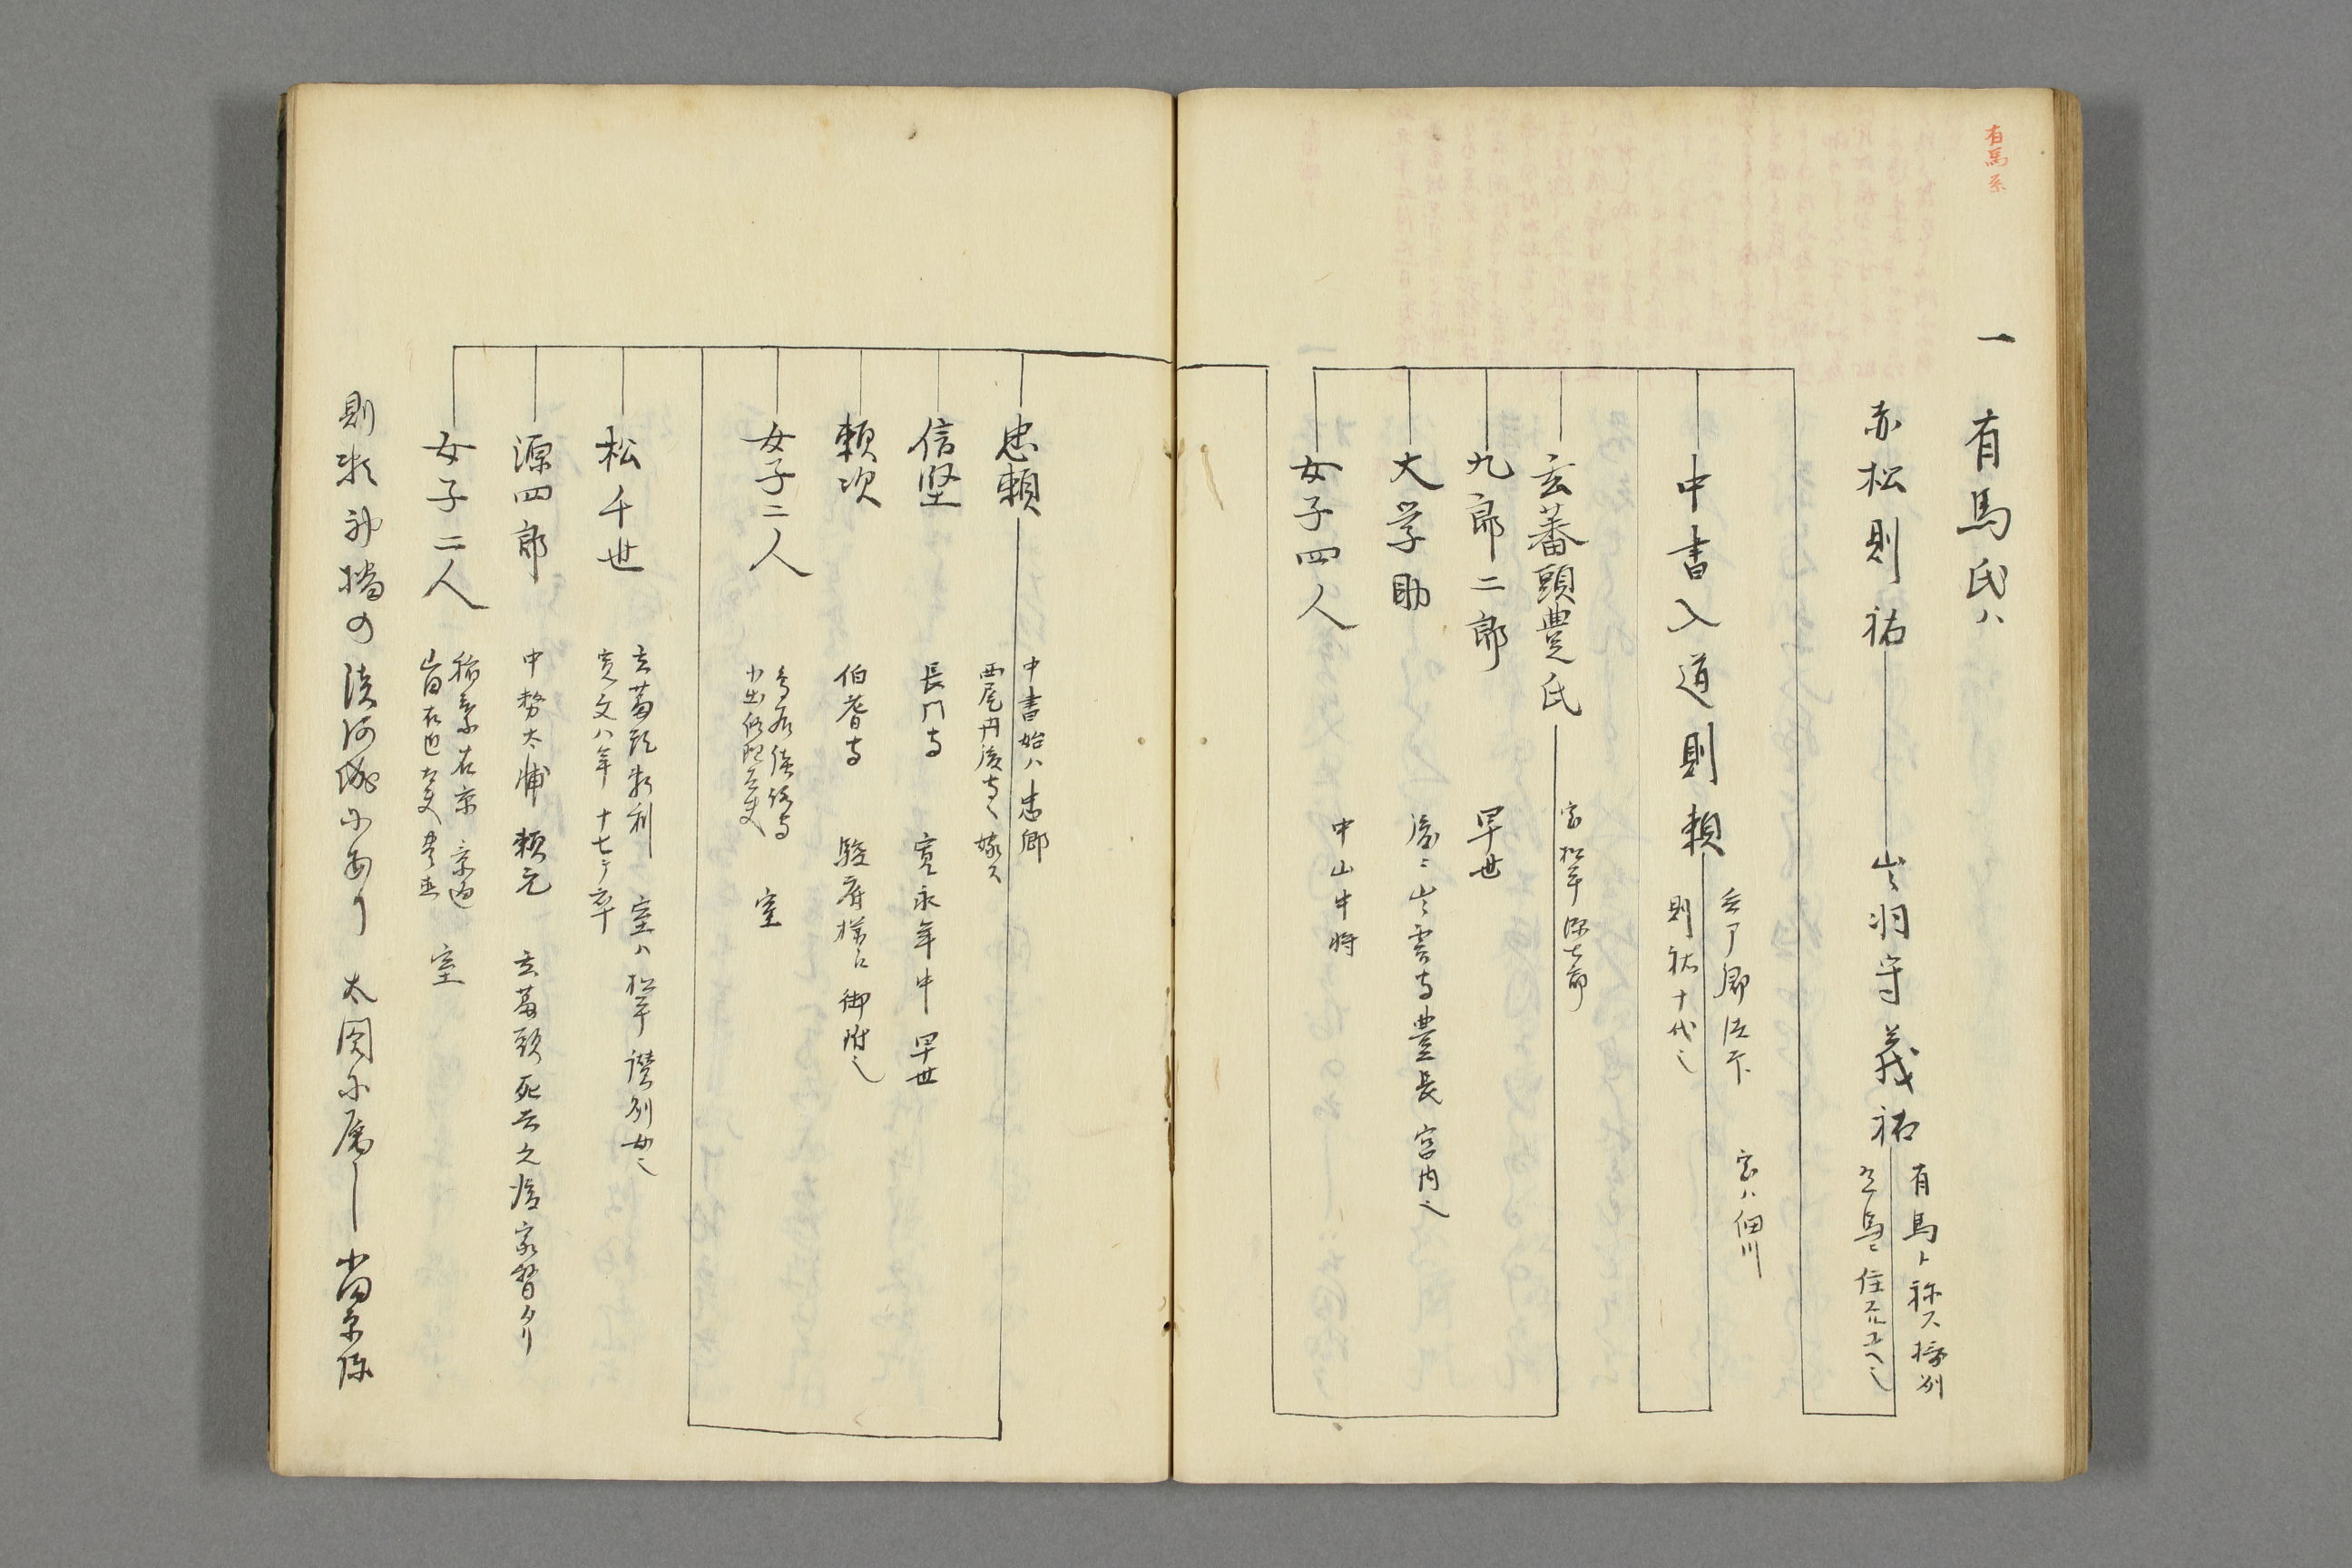 有馬系
一 有馬氏ハ
赤松則祐
出羽守義祐
有馬ト称ス摂州
有馬ニ住スル故ヘ也
中書入道則頼
兵部卿法印
則祐十代也
室ハ細川
玄蕃頭豊氏
室松平源七郎
九郎二郎 早世
大学助 後ニ出雲守豊長 宮内也
女子四人 中山中将
忠頼
中書始ハ忠郷
西尾丹後守ヘ嫁ス
信堅 長門守 寛永年中早世
頼次 伯耆守 駿府様ニ御附也
女子二人
室
松千世
玄蕃頭頼利 室ハ松平讃州女也
寛文八年十七ニテ卒
源四郎 中務大輔頼元 玄蕃頭死去之後家督タリ
女子二人
稲葉右京
室
太閤に属し